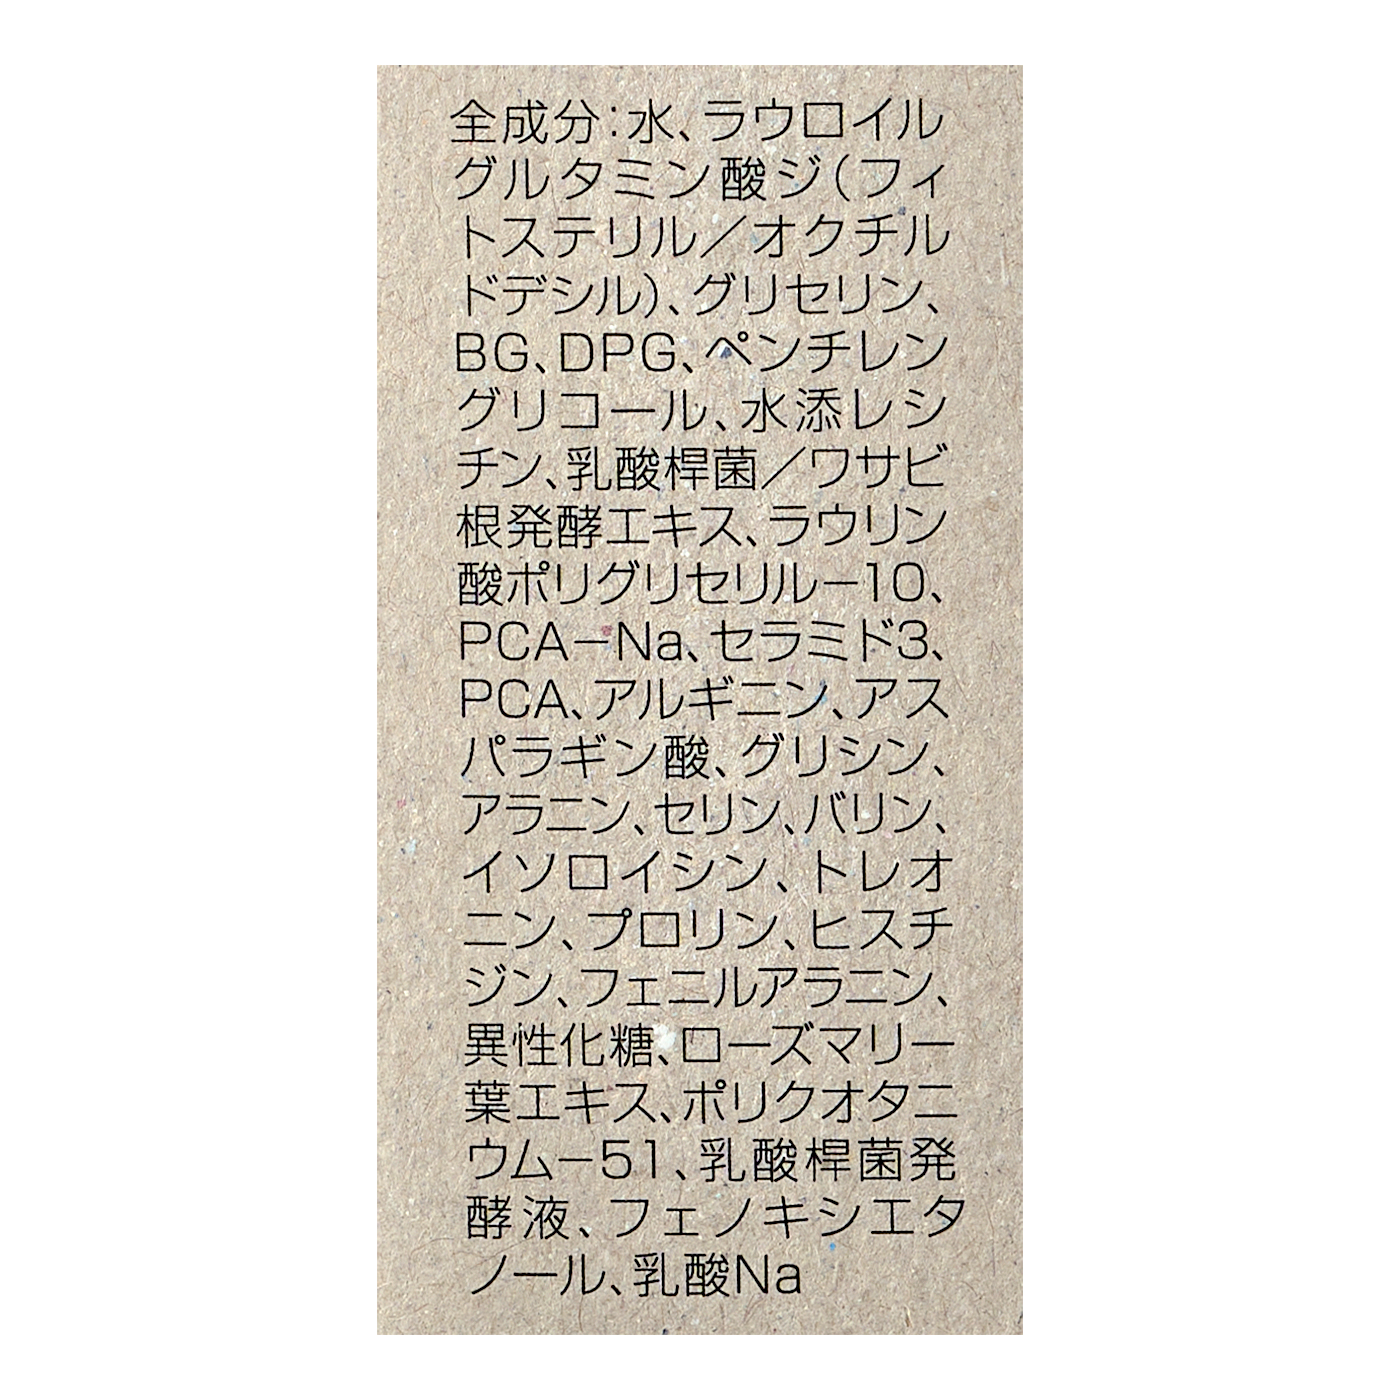 全成分:水、ラウロイル
グルタミン酸ジ(フィ
トステリル/オクチル
ドデシル)、グリセリン、
BG、DPG、ペンチレン
グリコール、水添レシ
チン、乳酸桿菌/ワサビ
根発酵エキス、ラウリン
酸ポリグリセリル-10、
PCA-Na、セラミド3、
PCA、アルギニン、アス
パラギン酸、グリシン、
アラニン、セリン、バリン、
イソロイシン、トレオ
ニン、プロリン、ヒスチ
ジン、フェニルアラニン、
異性化糖、ローズマリー
葉エキス、ポリクオタニ
ウム-51、乳酸桿菌発
酵液、フェノキシエタ
ノール、乳酸Na